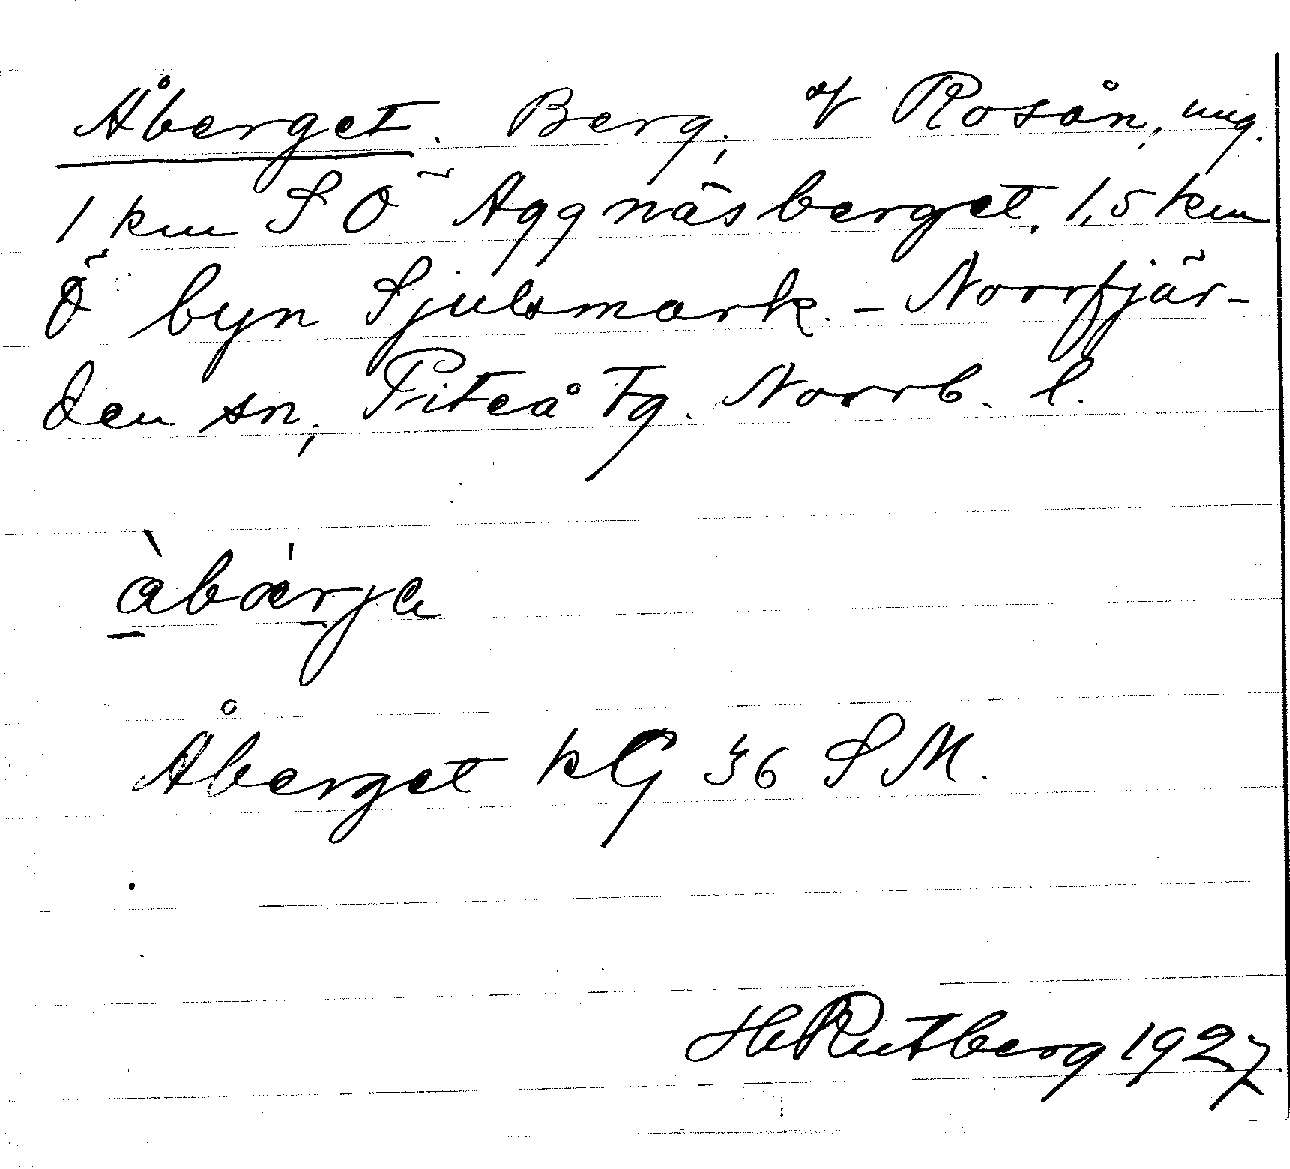 Åberget. Berg, V Rosån, ung.
1 km SÖ Aggnäsberget, 1,5 km
Ö byn Sjulsmark. – Norrfjär-
den sn, Piteå tg. Norrb. l.
àbǽrja
Åberget kG 36 SM.
H Rutberg 1927